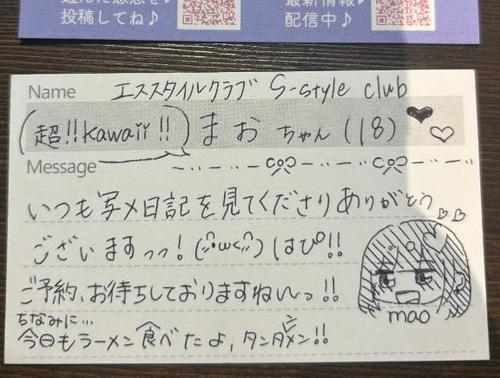 投稿してね♪
最新情報
配信中♪
Name エススタイルクラブ S-style club
超!!kawaii!! まおちゃん(18)
Message
いつも写メ日記を見てくださりありがとう
ございますっっ!(^ω<^)はぴ!!
ご予約、お待ちしておりますねいっ!!
ちなみに…
今日もラーメン食べたよ,タンタンメン!!
mao